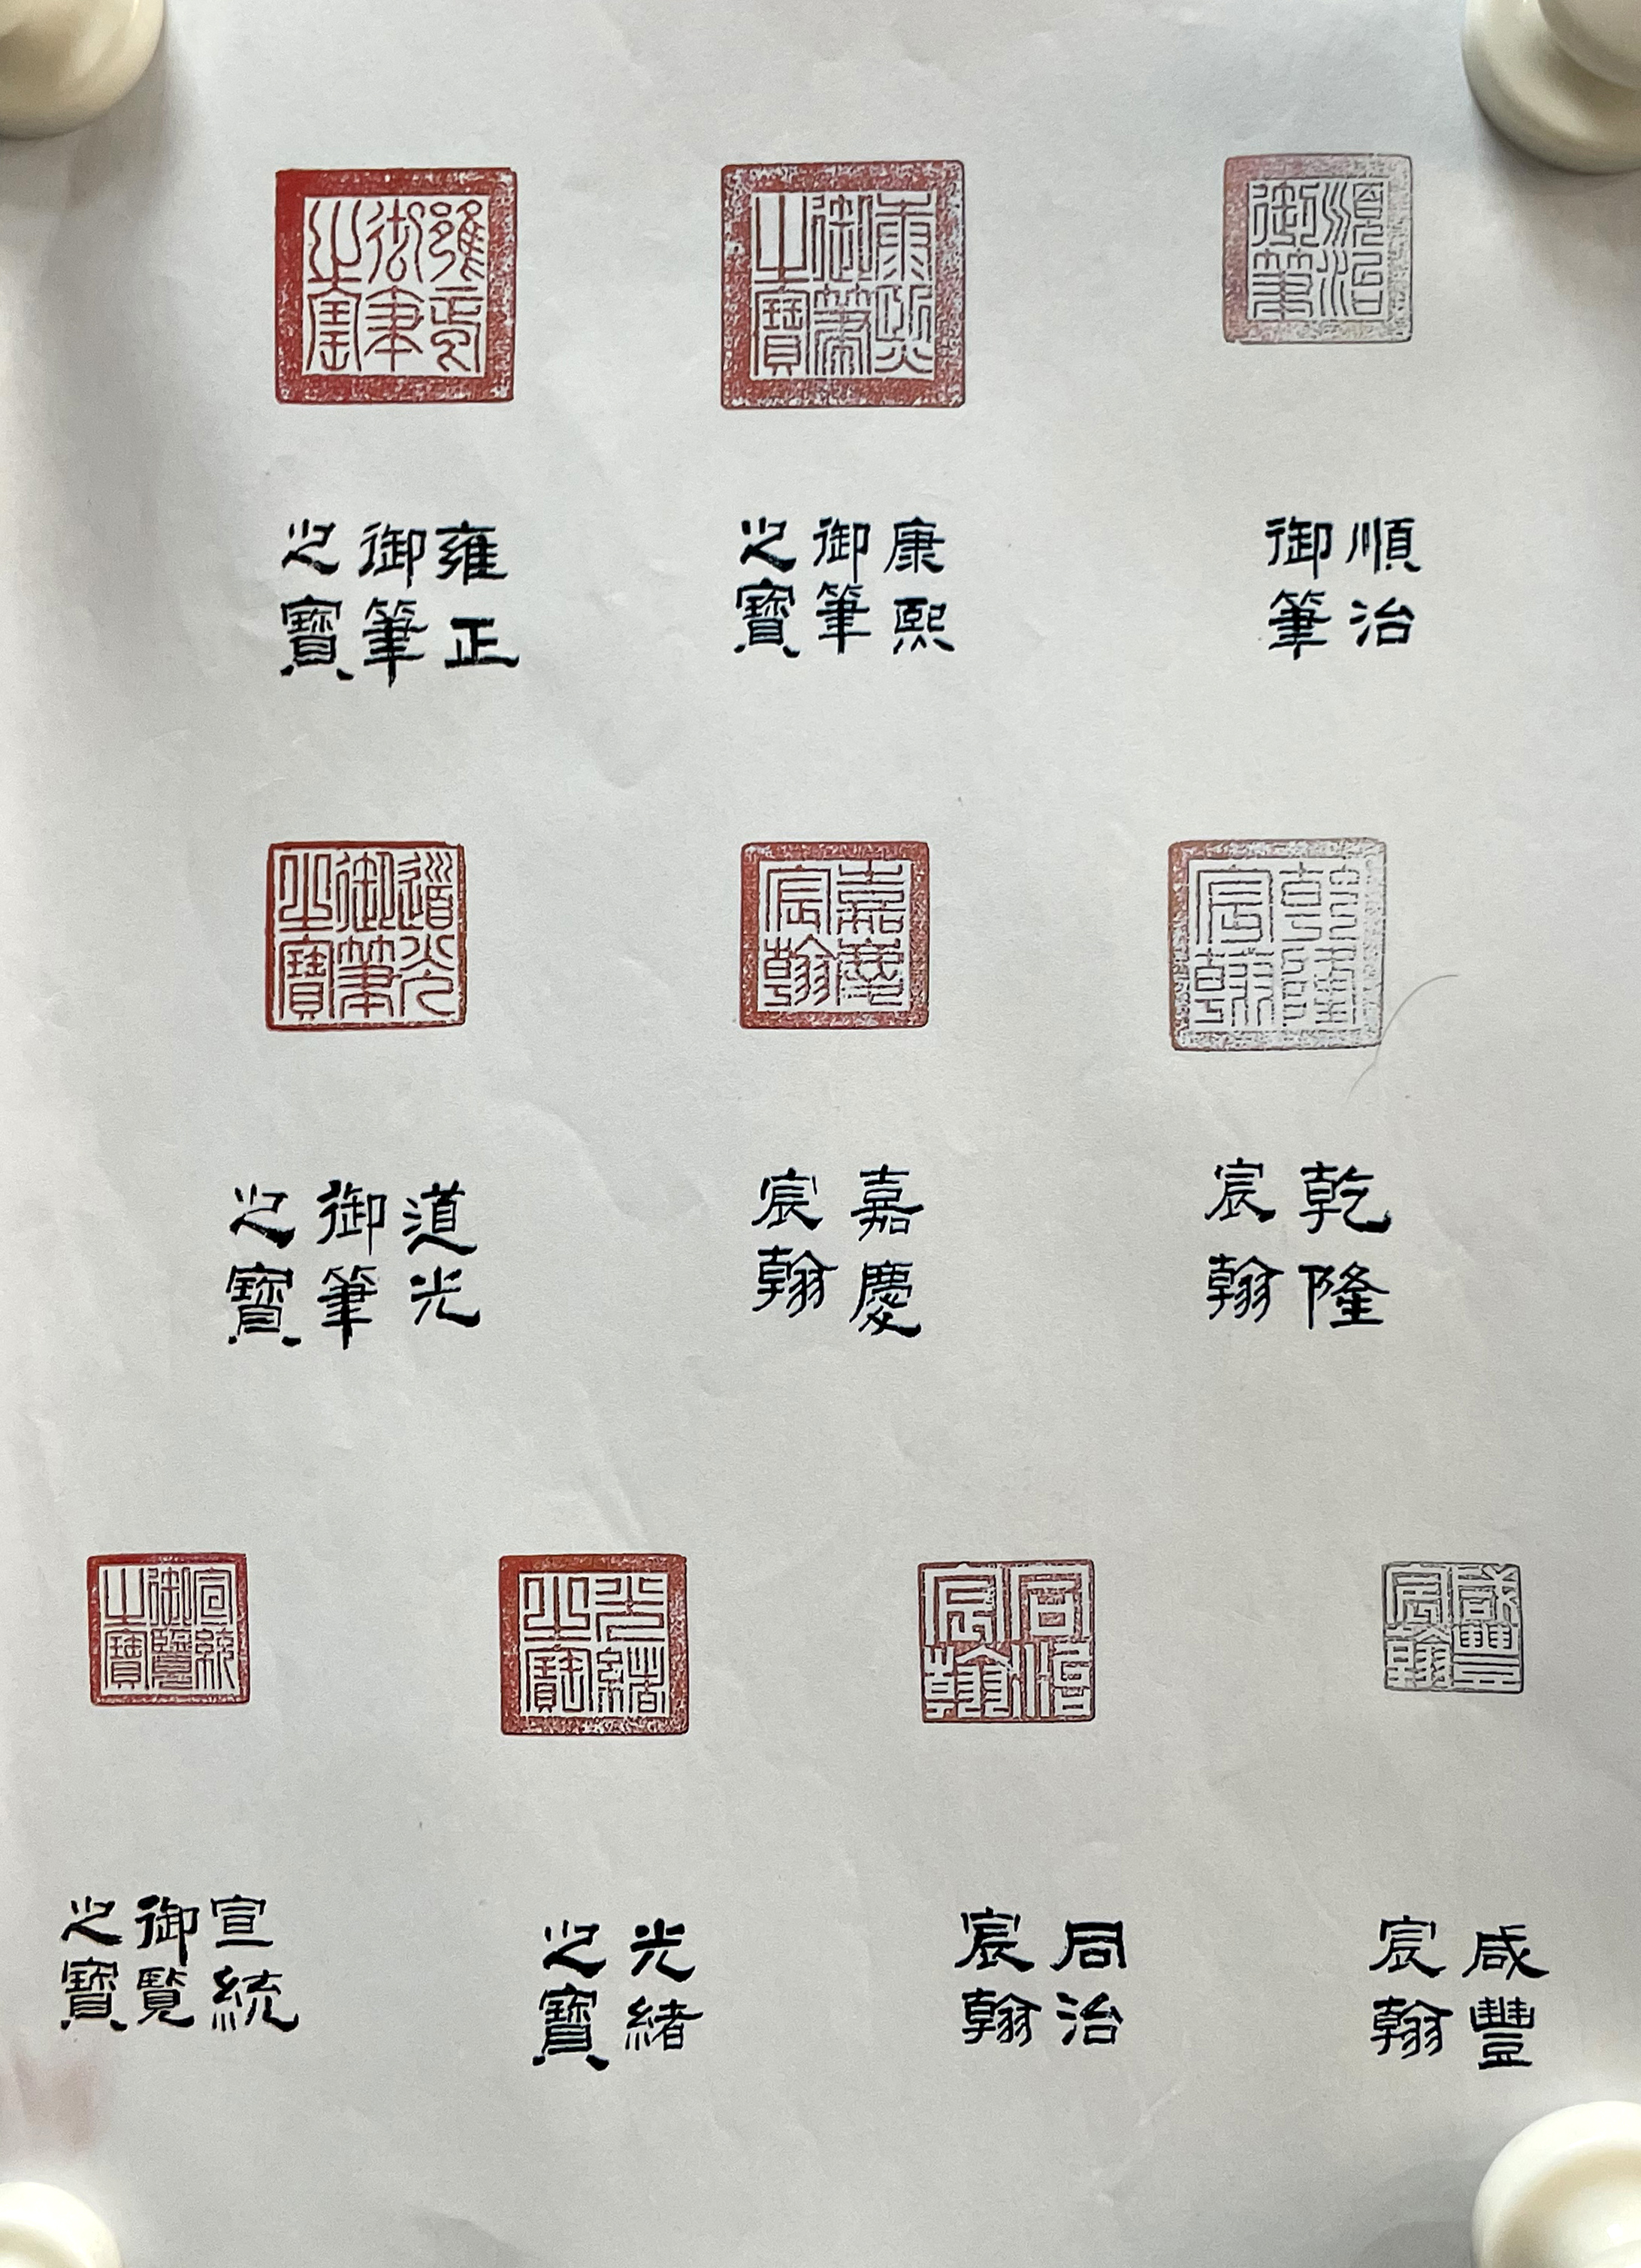 順治
御筆
康熙
御筆
之寶
雍正
御筆
之寶
順治
御筆
康熙
御筆
之寶
雍正
御筆
之寶
乾隆
宸翰
嘉慶
宸翰
道光
御筆
之寶
乾隆
宸翰
嘉慶
宸翰
道光
御筆
之寶
咸豐
宸翰
同治
宸翰
光緒
之寶
宣統
御覽
之寶
咸豐
宸翰
同治
宸翰
光緒
之寶
宣統
御覽
之寶